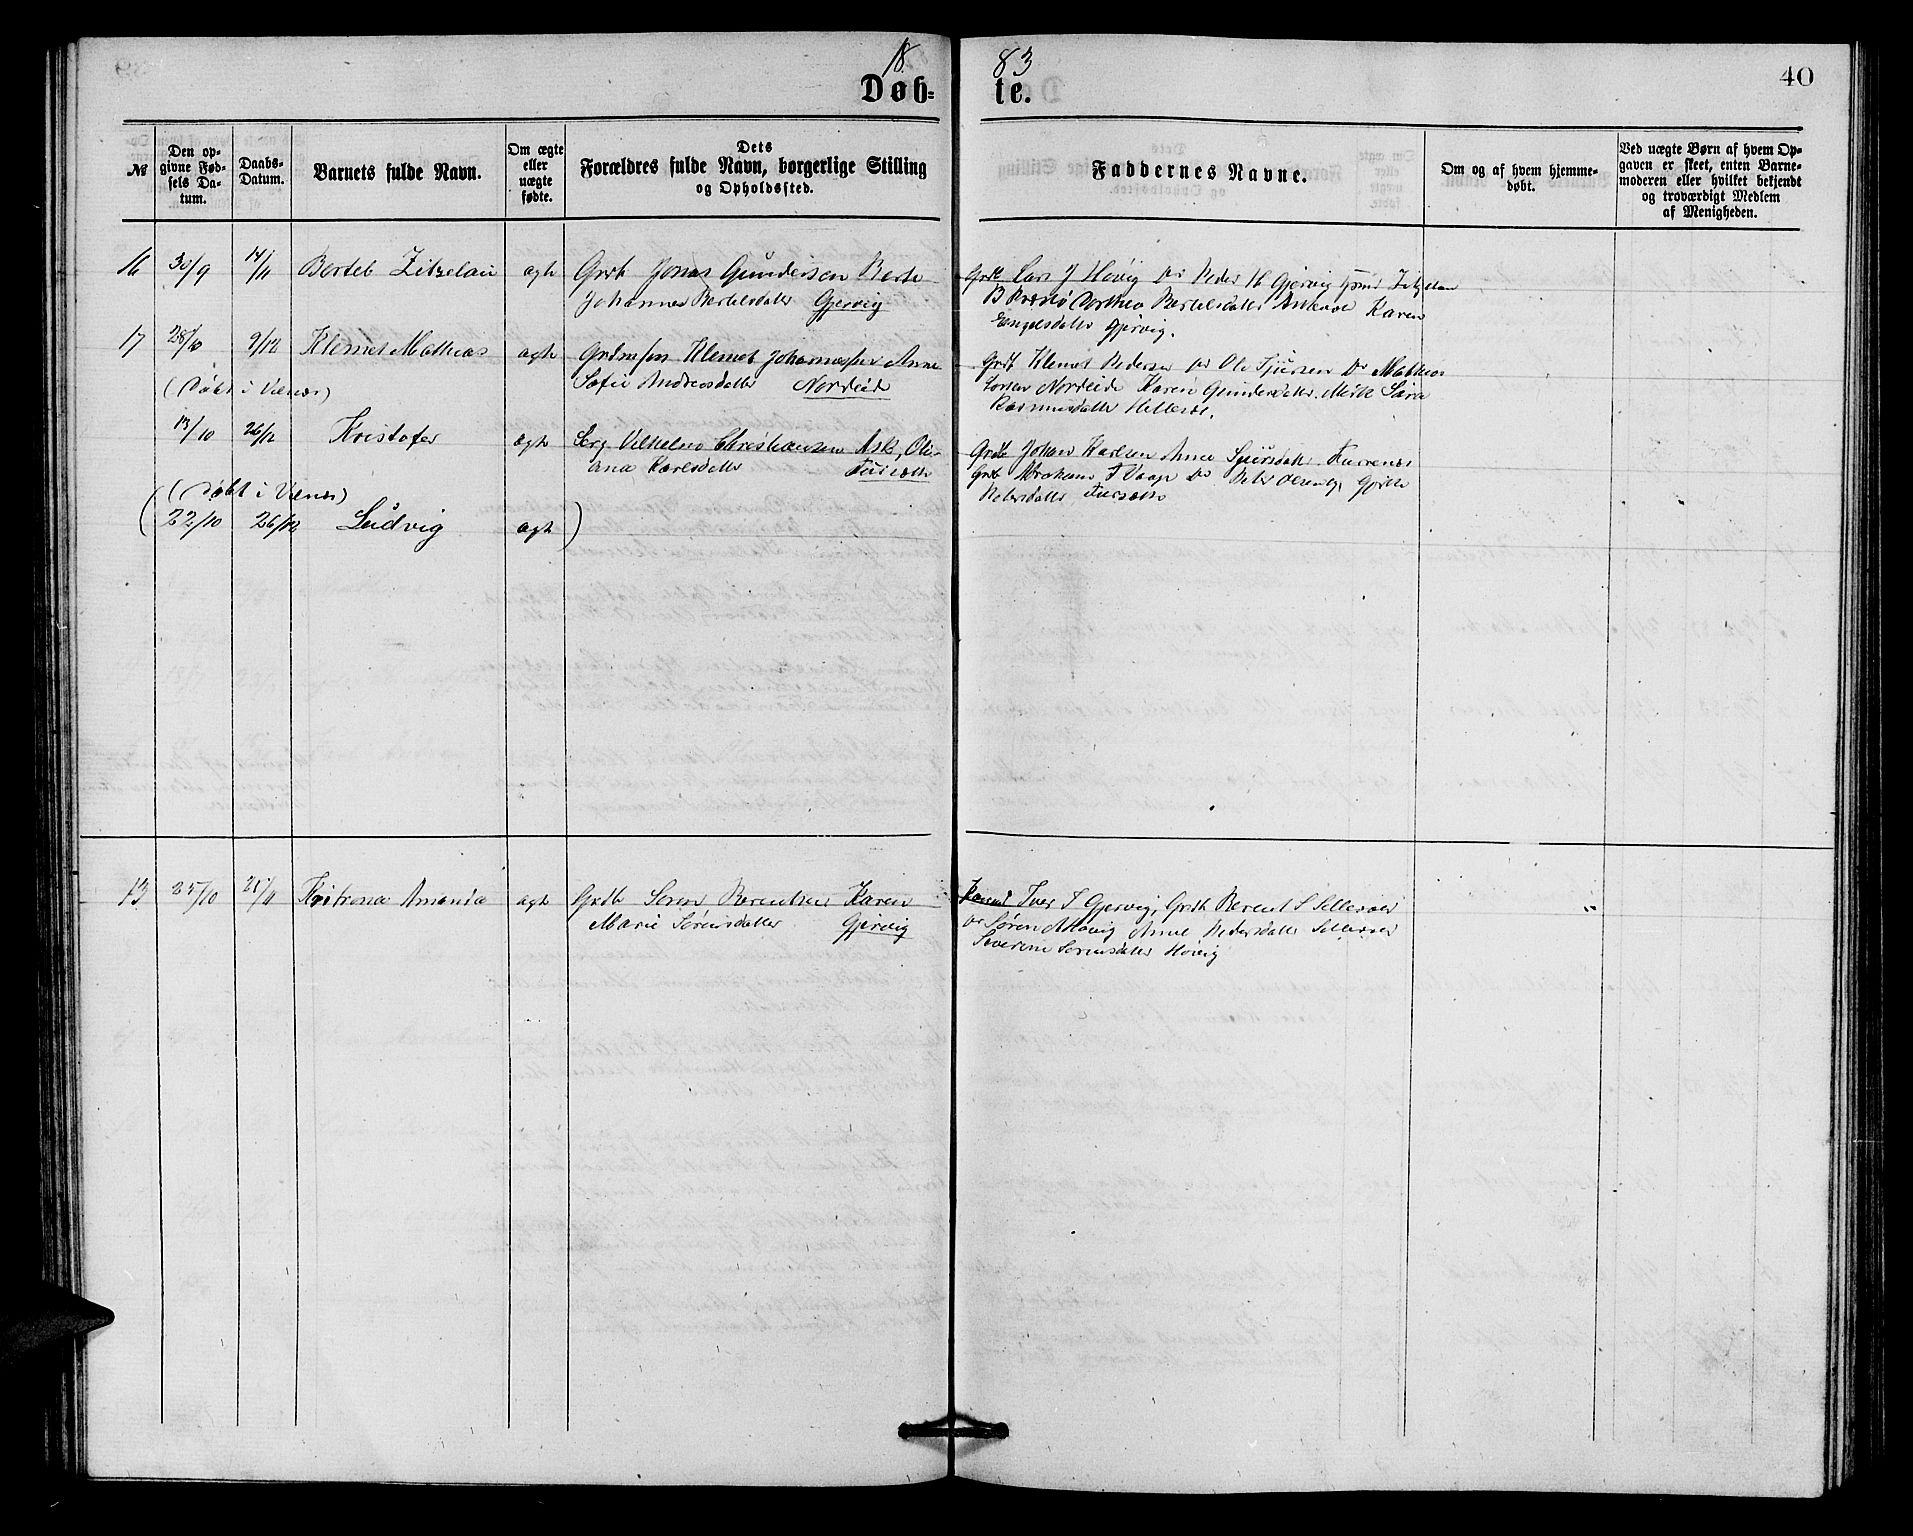 18 83
Døb- te.
40
№
Den opgivne Fødsels Datum.
Daabs-Datum.
Barnets fulde Navn.
Om ægte eller uægte fødte.
Dets Forældres fulde Navn, borgerlige Stilling og Opholdssted.
Faddernes Navne.
Om og af hvem hjemmedøbt.
Ved uægte Børn af hvem Opgaven er skeet, enten Barnemoderen eller hvilket bekjendt og troværdigt Medlem af Menigheden.
16 30/9 14/11 Bertel Zitzelau ægte Grdb Jonas Gundersen Berte
Johannes Bertelsdatter Gjervig
Grdb Lars J Høvig Do Peder H Gjervig
B Dorthea Bertelsdatter Karen
Engelsdatter Gjervig.
17 28/10 9/12 Klemet Mathias ægte Klemet Johannessen Anne
Sofie Andreasdatter Nordeide
Grdb Klemet Pedersen Do Ole Sjursen Do Mathias
Nordeide Karen Gundersdatter
Rasmusdatter
(Døbt i Værnes)
13/10 26/12 Kristofer ægte Vilhelm Christiansen Ask, Oli-
ana Karlsdatter
Grdb Johan Karlsen Anne Sjursdatter Furenes
Grdb Abraham Do Peter Olsen
Petersdatter
(Døbt i Værnes)
(22/10 26/12 Ludvig ægte)
13 25/10 21/11 Kristiana Amanda ægte Grdb Søren Berentsen Karen
Marie Sørensdatter Gjervig
Iver I Gjervig, Grdb Berent S Sellevold
Søren A Høvig Anne Pedersdatter Sellevold
Severine Sørensdatter Høvig
"